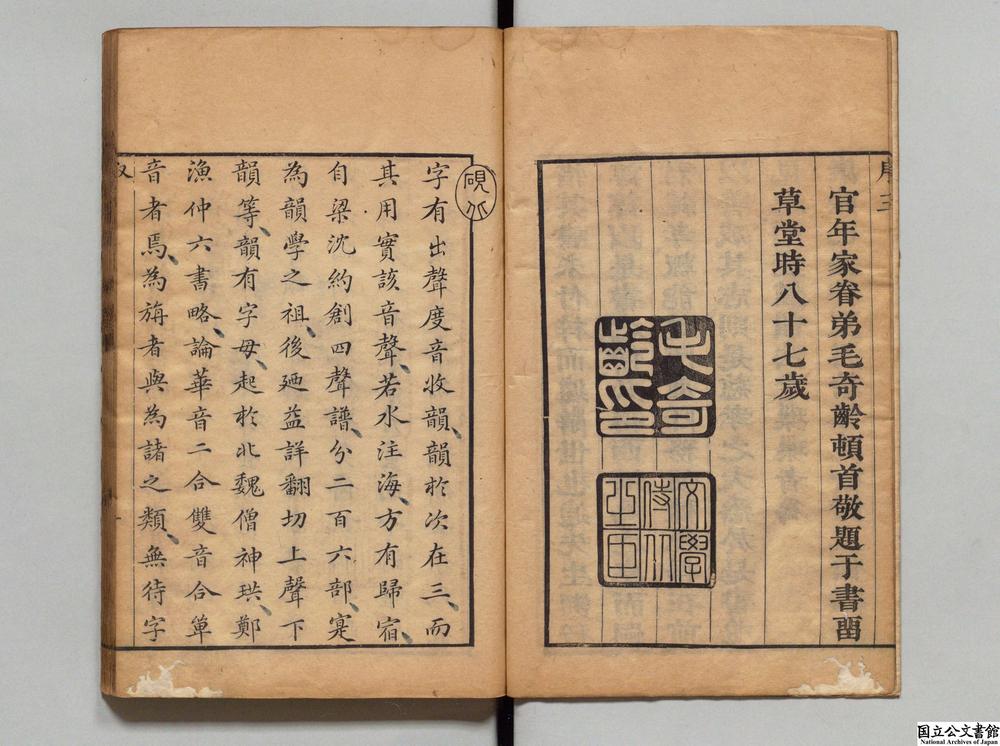 序 三
官年家眷弟毛奇齡頓首敬題于書留
草堂時八十七歲
毛奇
齡印
文學
侍從
之臣
硯北
字有出聲度音收韻韻於次在三而
其用實該音聲若水注海方有歸宿
自梁沈約創四聲譜分二百六部寔
為韻學之祖後廼益詳翻切上聲下
韻等韻有字母起於北魏僧神珙鄭
漁仲六書略論華音二合雙音合單
音者焉為旃者與為諸之類無待字
叙
一
国立公文書館
National Archives of Japan